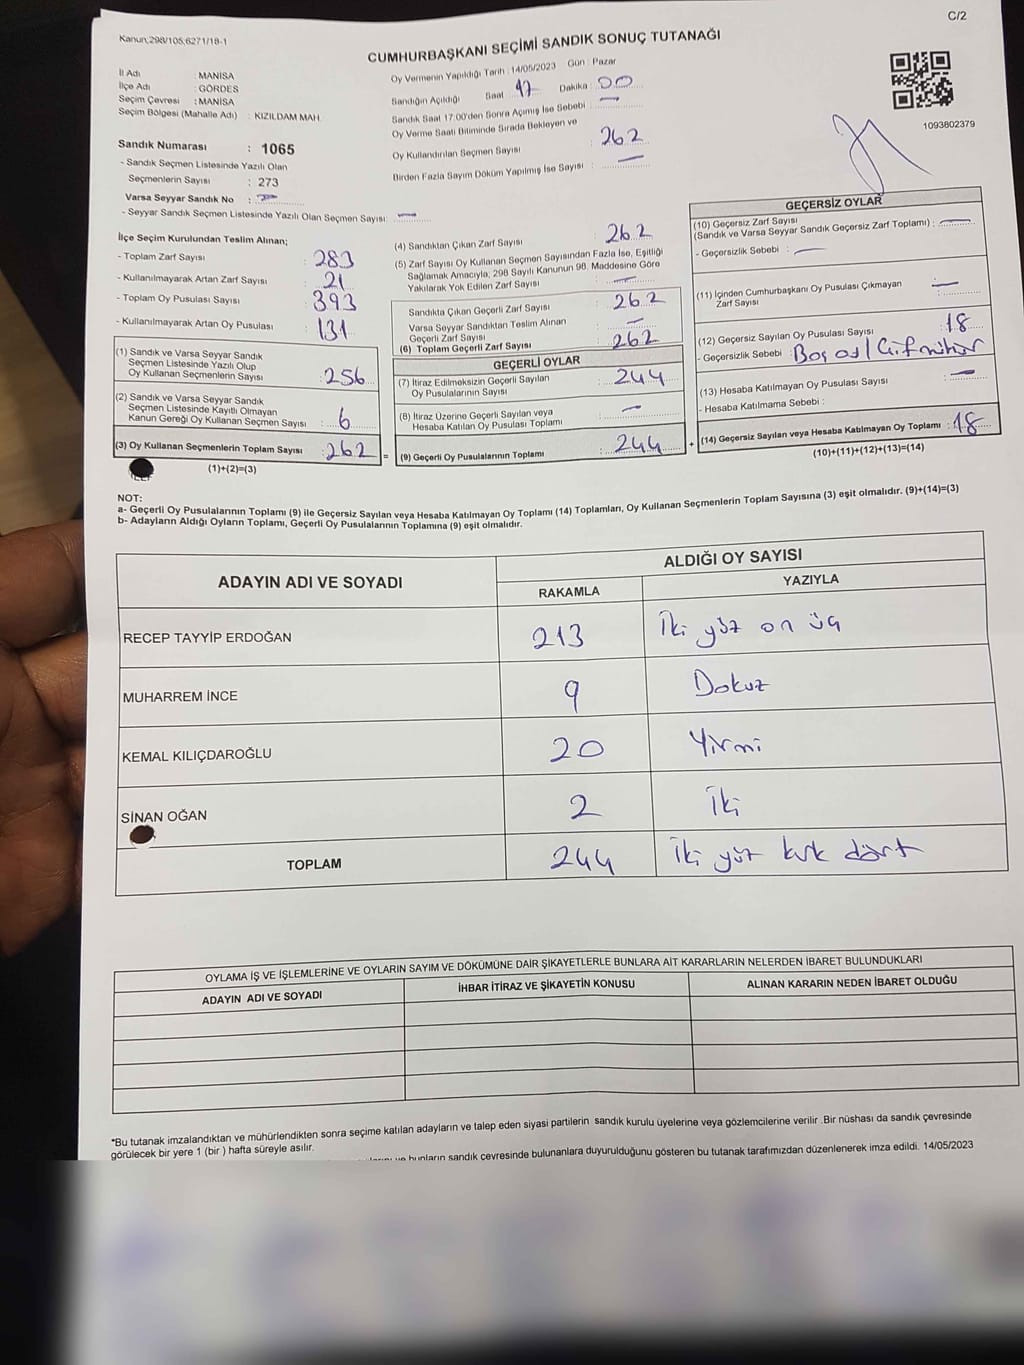 C/2
Kanun,298/105,6271/18-1
CUMHURBAŞKANI SEÇİMİ SANDIK SONUÇ TUTANAĞI
İl Adı : MANİSA
İlçe Adı : GÖRDES
Seçim Çevresi : MANİSA
Seçim Bölgesi (Mahalle Adı) : KIZILDAM MAH.
Sandık Numarası : 1065
- Sandık Seçmen Listesinde Yazılı Olan
Seçmenlerin Sayısı : 273
Varsa Seyyar Sandık No : —
- Seyyar Sandık Seçmen Listesinde Yazılı Olan Seçmen Sayısı: —
Oy Vermenin Yapıldığı Tarih : 14/05/2023 Gün : Pazar
Sandığın Açıldığı Saat 17 Dakika : 00
Sandık Saat 17:00'den Sonra Açımış İse Sebebi : —
Oy Verme Saati Bitiminde Sırada Bekleyen ve
Oy Kullandırılan Seçmen Sayısı : 262
Birden Fazla Sayım Döküm Yapılmış İse Sayısı : —
1093802379
İlçe Seçim Kurulundan Teslim Alınan;
- Toplam Zarf Sayısı : 283
- Kullanılmayarak Artan Zarf Sayısı : 21
- Toplam Oy Pusulası Sayısı : 393
- Kullanılmayarak Artan Oy Pusulası : 131
(1) Sandık ve Varsa Seyyar Sandık
Seçmen Listesinde Yazılı Olup
Oy Kullanan Seçmenlerin Sayısı : 256
(2) Sandık ve Varsa Seyyar Sandık
Seçmen Listesinde Kayıtlı Olmayan
Kanun Gereği Oy Kullanan Seçmen Sayısı : 6
(3) Oy Kullanan Seçmenlerin Toplam Sayısı : 262 =
(1)+(2)=(3)
(4) Sandıktan Çıkan Zarf Sayısı : 262
(5) Zarf Sayısı Oy Kullanan Seçmen Sayısından Fazla İse, Eşitliği
Sağlamak Amacıyla, 298 Sayılı Kanunun 98. Maddesine Göre
Yakılarak Yok Edilen Zarf Sayısı : —
Sandıkta Çıkan Geçerli Zarf Sayısı : 262
Varsa Seyyar Sandıktan Teslim Alınan
Geçerli Zarf Sayısı : —
(6) Toplam Geçerli Zarf Sayısı : 262
GEÇERLİ OYLAR
(7) İtiraz Edilmeksizin Geçerli Sayılan
Oy Pusulalarının Sayısı : 244
(8) İtiraz Üzerine Geçerli Sayılan veya
Hesaba Katılan Oy Pusulası Toplamı : —
(9) Geçerli Oy Pusulalarının Toplamı : 244 +
GEÇERSİZ OYLAR
(10) Geçersiz Zarf Sayısı
(Sandık ve Varsa Seyyar Sandık Geçersiz Zarf Toplamı) : —
- Geçersizlik Sebebi : —
(11) İçinden Cumhurbaşkanı Oy Pusulası Çıkmayan
Zarf Sayısı : —
(12) Geçersiz Sayılan Oy Pusulası Sayısı : 18
- Geçersizlik Sebebi : Boş
(13) Hesaba Katılmayan Oy Pusulası Sayısı : —
- Hesaba Katılmama Sebebi :
(14) Geçersiz Sayılan veya Hesaba Katılmayan Oy Toplamı : 18
(10)+(11)+(12)+(13)=(14)
NOT:
a- Geçerli Oy Pusulalarının Toplamı (9) ile Geçersiz Sayılan veya Hesaba Katılmayan Oy Toplamı (14) Toplamları, Oy Kullanan Seçmenlerin Toplam Sayısına (3) eşit olmalıdır. (9)+(14)=(3)
b- Adayların Aldığı Oyların Toplamı, Geçerli Oy Pusulalarının Toplamına (9) eşit olmalıdır.
ADAYIN ADI VE SOYADI ALDIĞI OY SAYISI
RAKAMLA YAZIYLA
RECEP TAYYİP ERDOĞAN 213 İki yüz on üç
MUHARREM İNCE 9 Dokuz
KEMAL KILIÇDAROĞLU 20 Yirmi
SİNAN OĞAN 2 İki
TOPLAM 244 İki yüz kırk dört
OYLAMA İŞ VE İŞLEMLERİNE VE OYLARIN SAYIM VE DÖKÜMÜNE DAİR ŞİKAYETLERLE BUNLARA AİT KARARLARIN NELERDEN İBARET BULUNDUKLARI
ADAYIN ADI VE SOYADI İHBAR İTİRAZ VE ŞİKAYETİN KONUSU ALINAN KARARIN NEDEN İBARET OLDUĞU
*Bu tutanak imzalandıktan ve mühürlendikten sonra seçime katılan adayların ve talep eden siyasi partilerin sandık kurulu üyelerine veya gözlemcilerine verilir .Bir nüshası da sandık çevresinde
görülecek bir yere 1 (bir ) hafta süreyle asılır.
bunların sandık çevresinde bulunanlara duyurulduğunu gösteren bu tutanak tarafımızdan düzenlenerek imza edildi. 14/05/2023